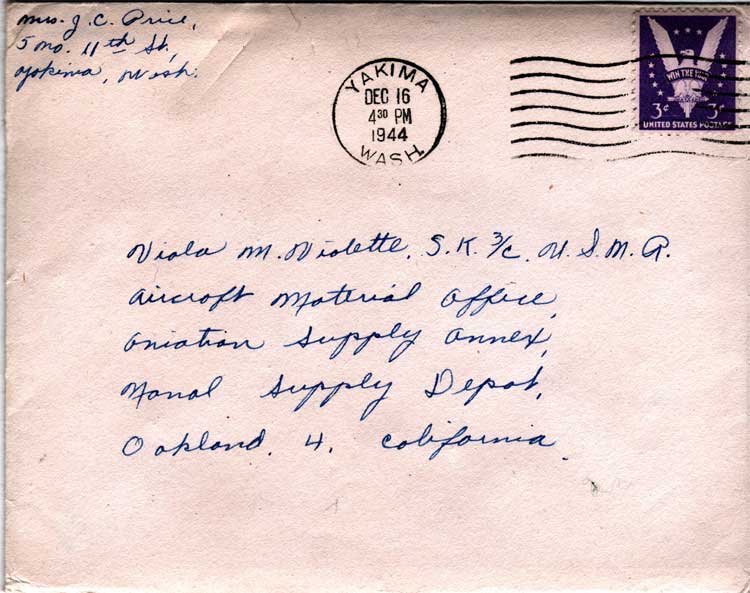 Mrs. J. C. Price,
5 No. 11th St,
Yakima, Wash.
YAKIMA
DEC 16
4 30 PM
1944
WASH.
WIN THE WAR
3¢ 3¢
UNITED STATES POSTAGE
Viola M. Violette, S.K. 3/c. U.S.N.R.
Aircraft Material Office,
Aviation Supply Annex,
Naval Supply Depot,
Oakland, 4, California.